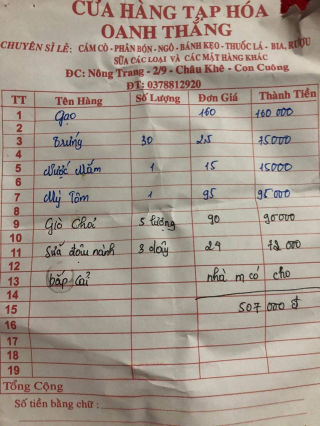 CỬA HÀNG TẠP HÓA
OANH THẮNG
CHUYÊN SỈ LẺ: CÁM CÒ - PHÂN BÓN - NGÔ - BÁNH KẸO - THUỐC LÁ - BIA, RƯỢU
SỮA CÁC LOẠI VÀ CÁC MẶT HÀNG KHÁC
ĐC: Nông Trang - 2/9 - Châu Khê - Con Cuông
ĐT: 0378812920
TT Tên Hàng Số Lượng Đơn Giá Thành Tiền
1 Gạo 160 160 000
2
3 Trứng 30 25 75000
4
5 Nước Mắm 1 15 15000
6
7 Mỳ Tôm 1 95 95000
8
9 Giò Chả 5 lượng 90 90000
10
11 Sữa đậu nành 3 dây 24 72 000
12
13 bắp cải nhà m có cho
14
15 507 000 đ
16
17
18
19
Tổng Cộng
Số tiền bằng chữ :